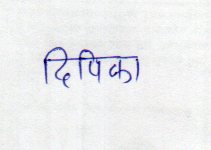 दिपिका